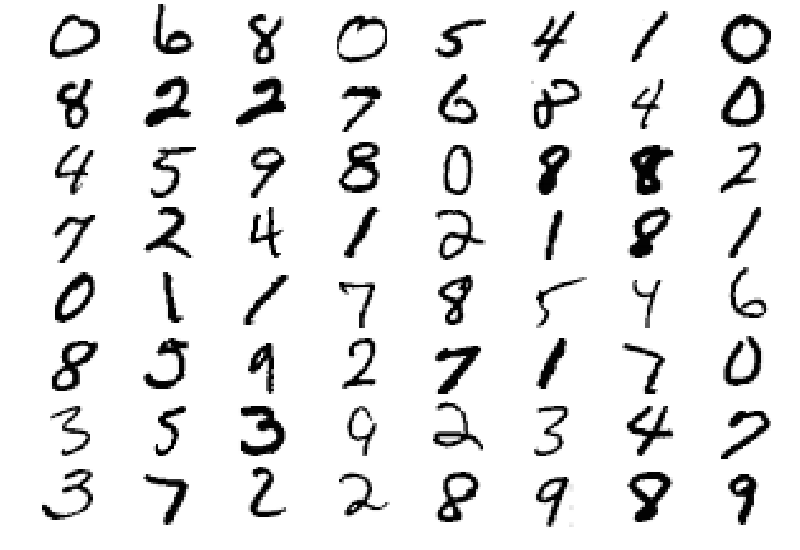 0 6 8 0 5 4 1 0
8 2 2 7 6 8 4 0
4 5 9 8 0 8 8 2
7 2 4 1 2 1 8 1
0 1 1 7 8 5 4 6
8 5 9 2 7 1 7 0
3 5 3 9 2 3 4 7
3 7 2 2 8 9 8 9